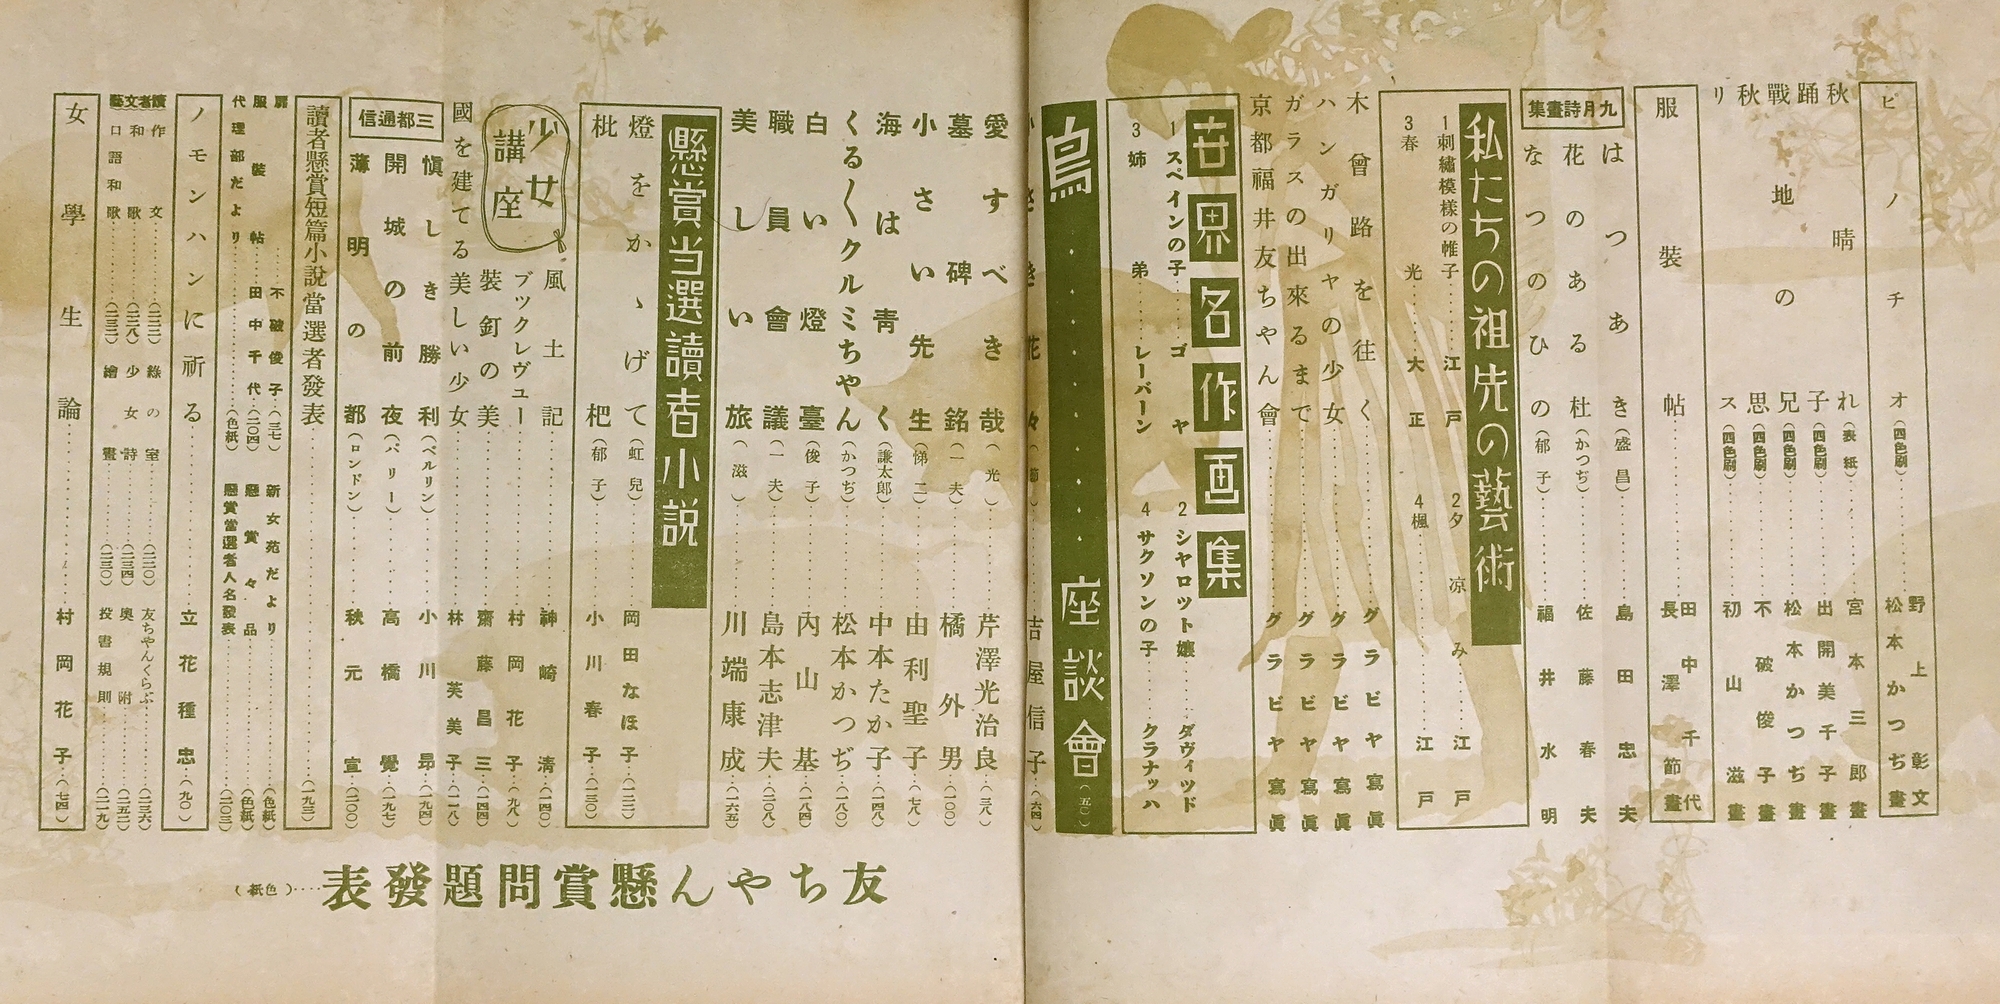 ピノチオ（四色刷） 野上彰文 松本かつぢ畫
秋晴れ（表紙） 宮本三郎畫
踊子（四色刷） 出開美千子畫
戰地の兄（四色刷） 松本かつぢ畫
秋思（四色刷） 不破俊子畫
リス（四色刷） 初山滋畫
服裝帖 田中千代 長澤節畫
九月詩畫集
はつあき（盛昌） 島田忠夫
花のある杜（かつぢ） 佐藤春夫
なつのひの（郁子） 福井水明
私たちの祖先の藝術
1刺繡模樣の帷子 江戸 2夕凉み 江戸
3春光 大正 4楓 江戸
木曾路を往く グラビヤ寫眞
ハンガリヤの少女 グラビヤ寫眞
ガラスの出來るまで グラビヤ寫眞
京都福井友ちゃん會 グラビヤ寫眞
世界名作画集
1スペインの子 ゴヤ 2シャロット孃 ダヴィッド
3姉弟 レーバーン 4サクソンの子 クラナッハ
鳥 座談會（五〇）
小さき花々（節） 吉屋信子（六四）
愛すべき哉（光） 芹澤光治良（三八）
墓碑銘（一夫） 橘外男（一〇〇）
小さい先生（悌二） 由利聖子（七八）
海は青く（謙太郎） 中本たか子（一四八）
くる〱クルミちゃん（かつぢ） 松本かつぢ（一八〇）
白い燈臺（俊子） 內山基（一八四）
職員會議（一夫） 島本志津夫（二〇八）
美しい旅（滋） 川端康成（一六五）
懸賞当選讀者小説
燈をかゝげて（虹兒） 岡田なほ子（一二二）
枇杷（郁子） 小川春子（一三〇）
少女講座
風土記 神崎淸（一四〇）
ブックレヴュー 村岡花子（九八）
裝釘の美 齋藤昌三（一四四）
國を建てる美しい少女 林芙美子（一一八）
三都通信
愼しき勝利（ベルリン） 小川昂（一九四）
開城の前夜（パリー） 高橋覺（一九七）
薄明の都（ロンドン） 秋元宣（二〇〇）
讀者懸賞短篇小說當選者發表（一九三）
扉 不破俊子（三七） 新女苑だより（色紙）
服裝帖 田中千代（二〇四） 懸賞々品（色紙）
代理部だより（色紙） 懸賞當選者人名發表（二〇三）
ノモンハンに祈る 立花種忠（九〇）
讀者文藝
作文（二三二） 綠の室（二二〇） 友ちゃんくらぶ（二三六）
和歌（二二八） 少女詩（二三四） 奧附（二五二）
口語和歌（二三二） 繪畫（二三〇） 投書規則（二一九）
女學生論 村岡花子（七四）
友ちゃん懸賞問題發表（色紙）